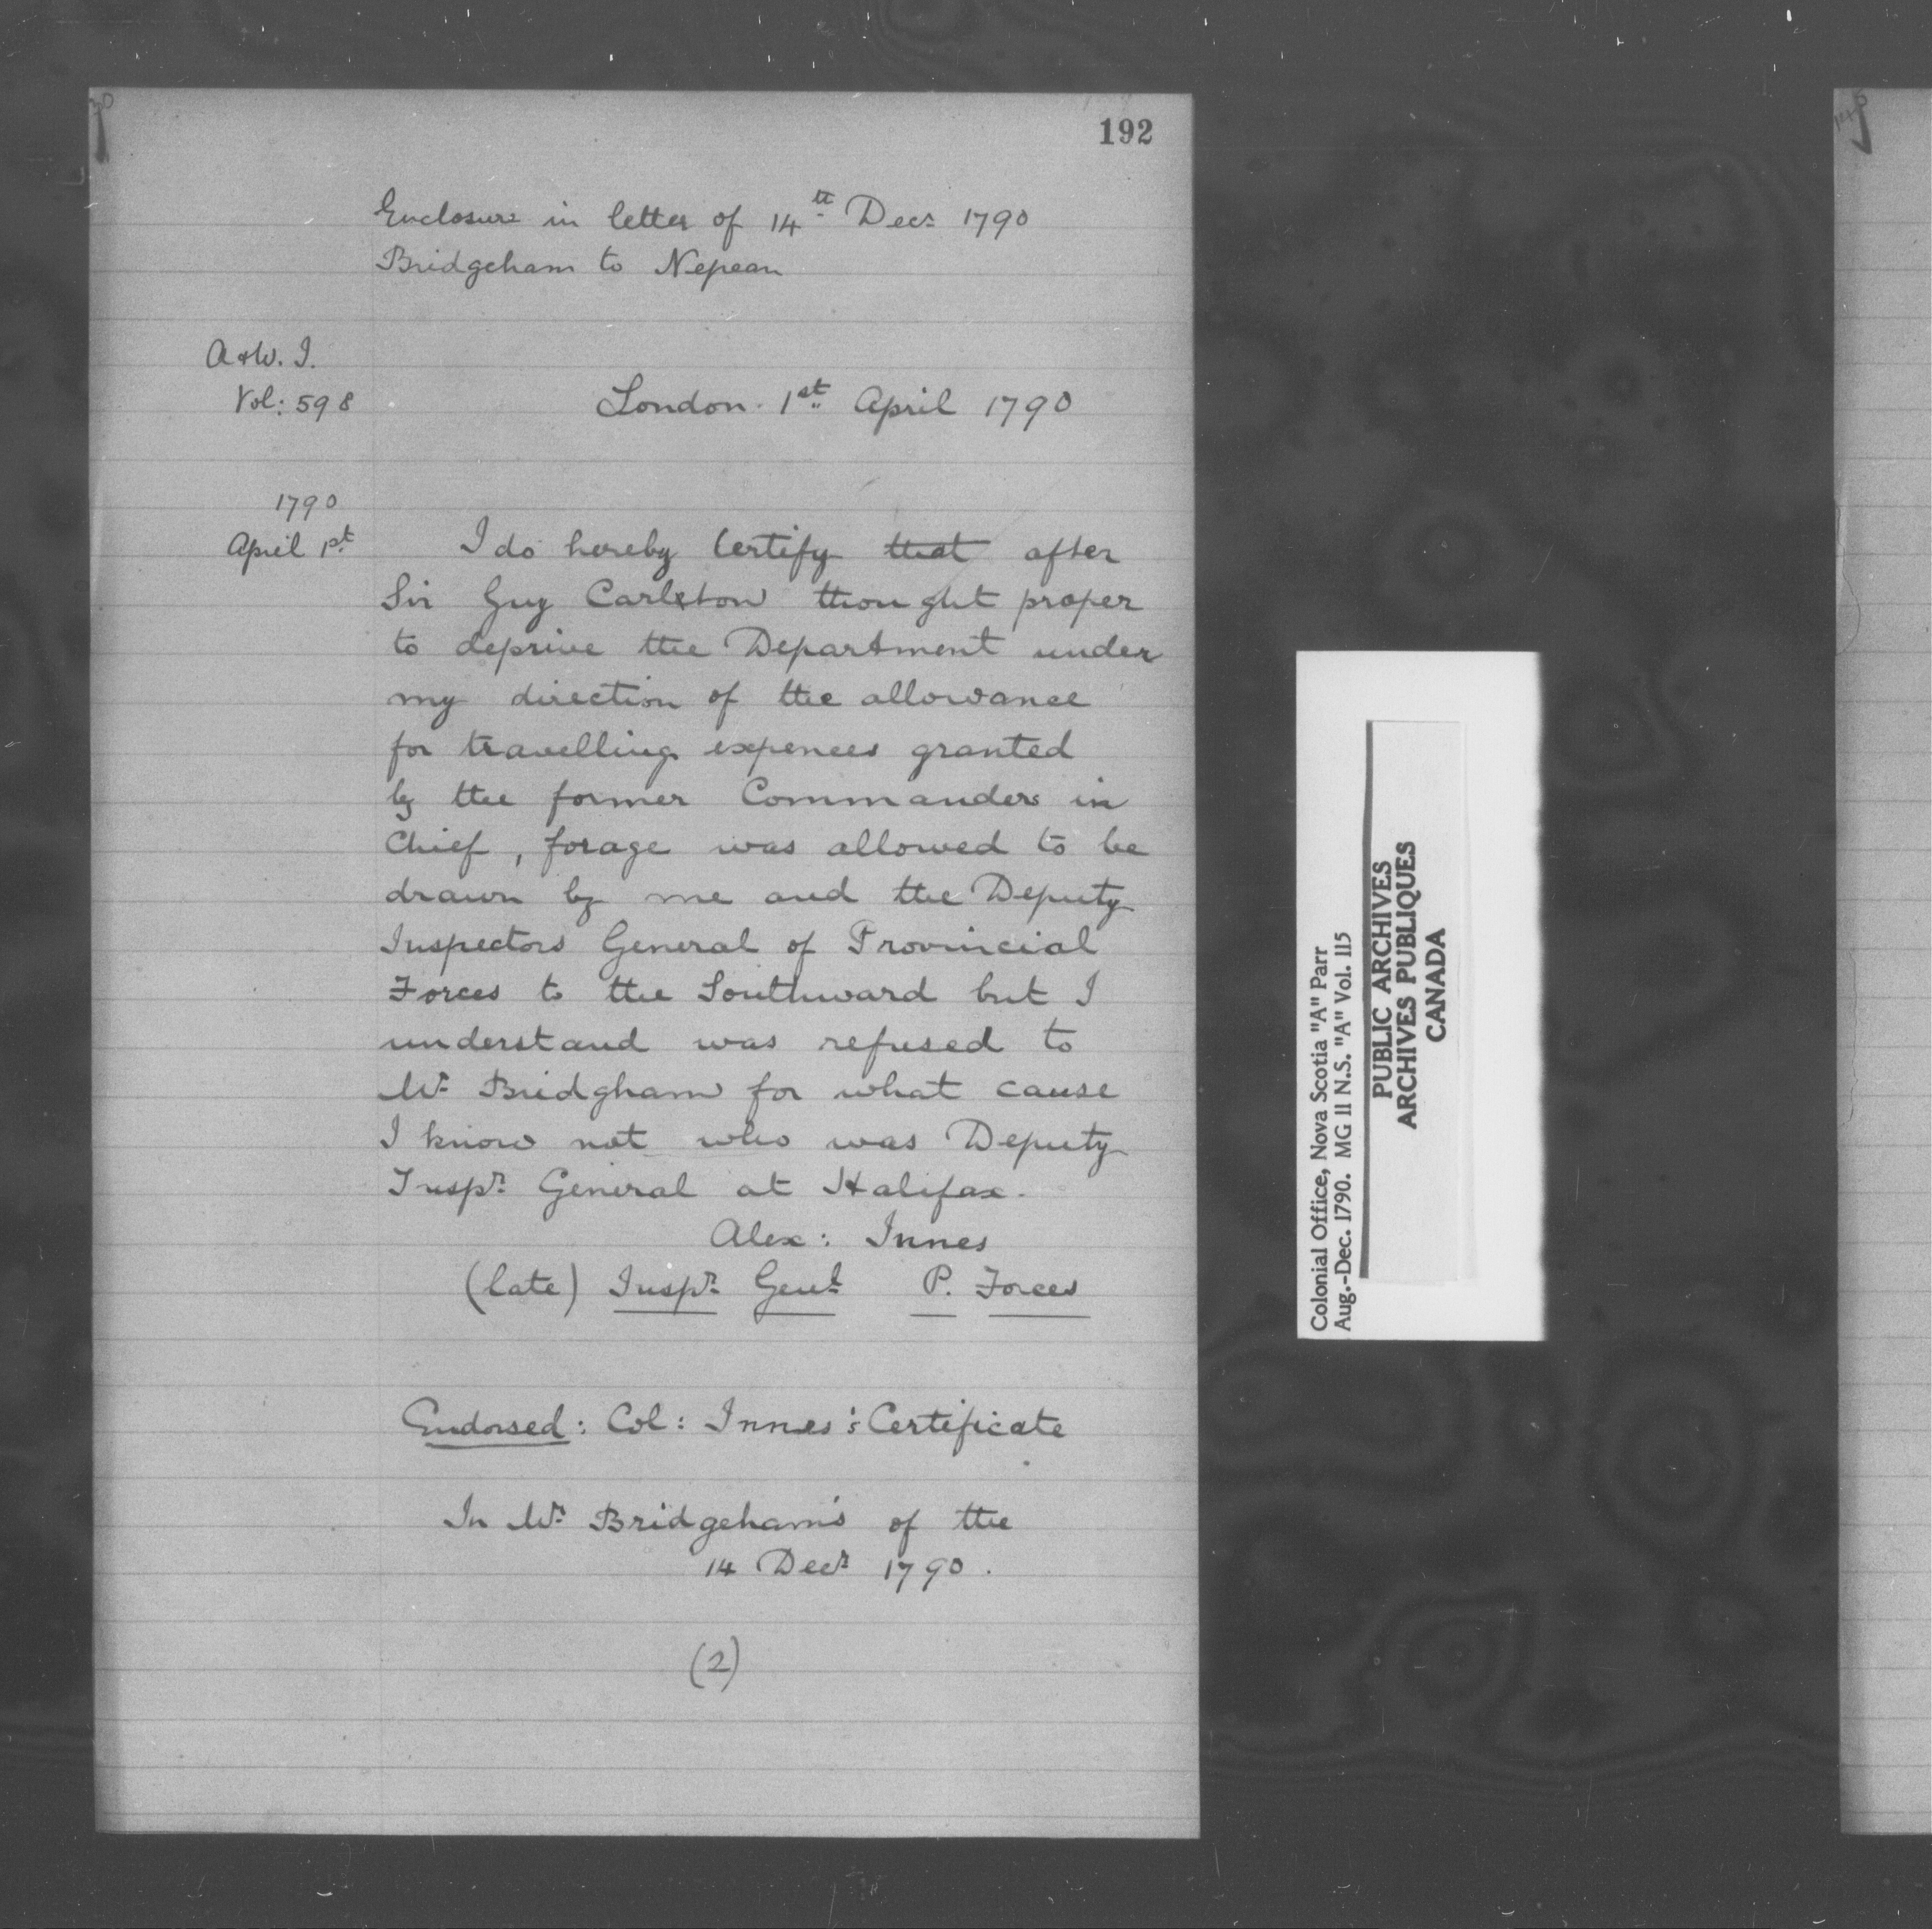 192
Enclosure in letter of 14th Decr 1790
Bridgeham to Nepean
A & W. I.
Vol: 598
London. 1st April 1790
1790
April 1st
I do hereby Certify that after
Sir Guy Carleton thought proper
to deprive the Department under
my direction of the allowance
for travelling expences granted
by the former Commanders in
Chief, forage was allowed to be
drawn by me and the Deputy
Inspectors General of Provincial
Forces to the Southward but I
understand was refused to
Mr Bridgham for what cause
I know not who was Deputy
Inspr General at Halifax.
Alex: Innes
(late) Inspr Genl P. Forces
Endorsed: Col: Innes's Certificate
In Mr Bridgeham's of the
14 Decr 1790.
(2)
Colonial Office, Nova Scotia "A" Parr
Aug.-Dec. 1790. MG 11 N.S. "A" Vol. 115
PUBLIC ARCHIVES
ARCHIVES PUBLIQUES
CANADA